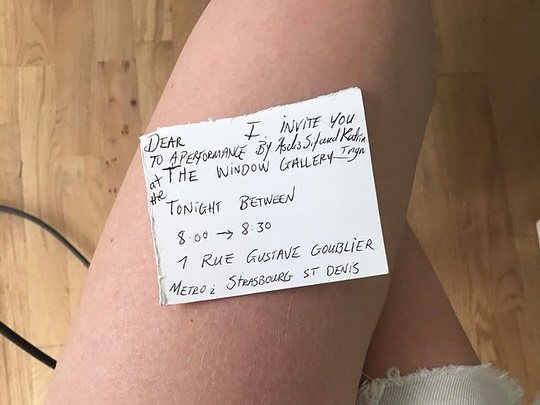 DEAR I. INVITE YOU
TO A PERFORMANCE BY Ásdís Sif and Katrín
at THE WINDOW GALLERY Inga
the
TONIGHT BETWEEN
8.00 → 8:30
1 RUE GUSTAVE GOUBLIER
METRO: STRASBOURG ST DENIS